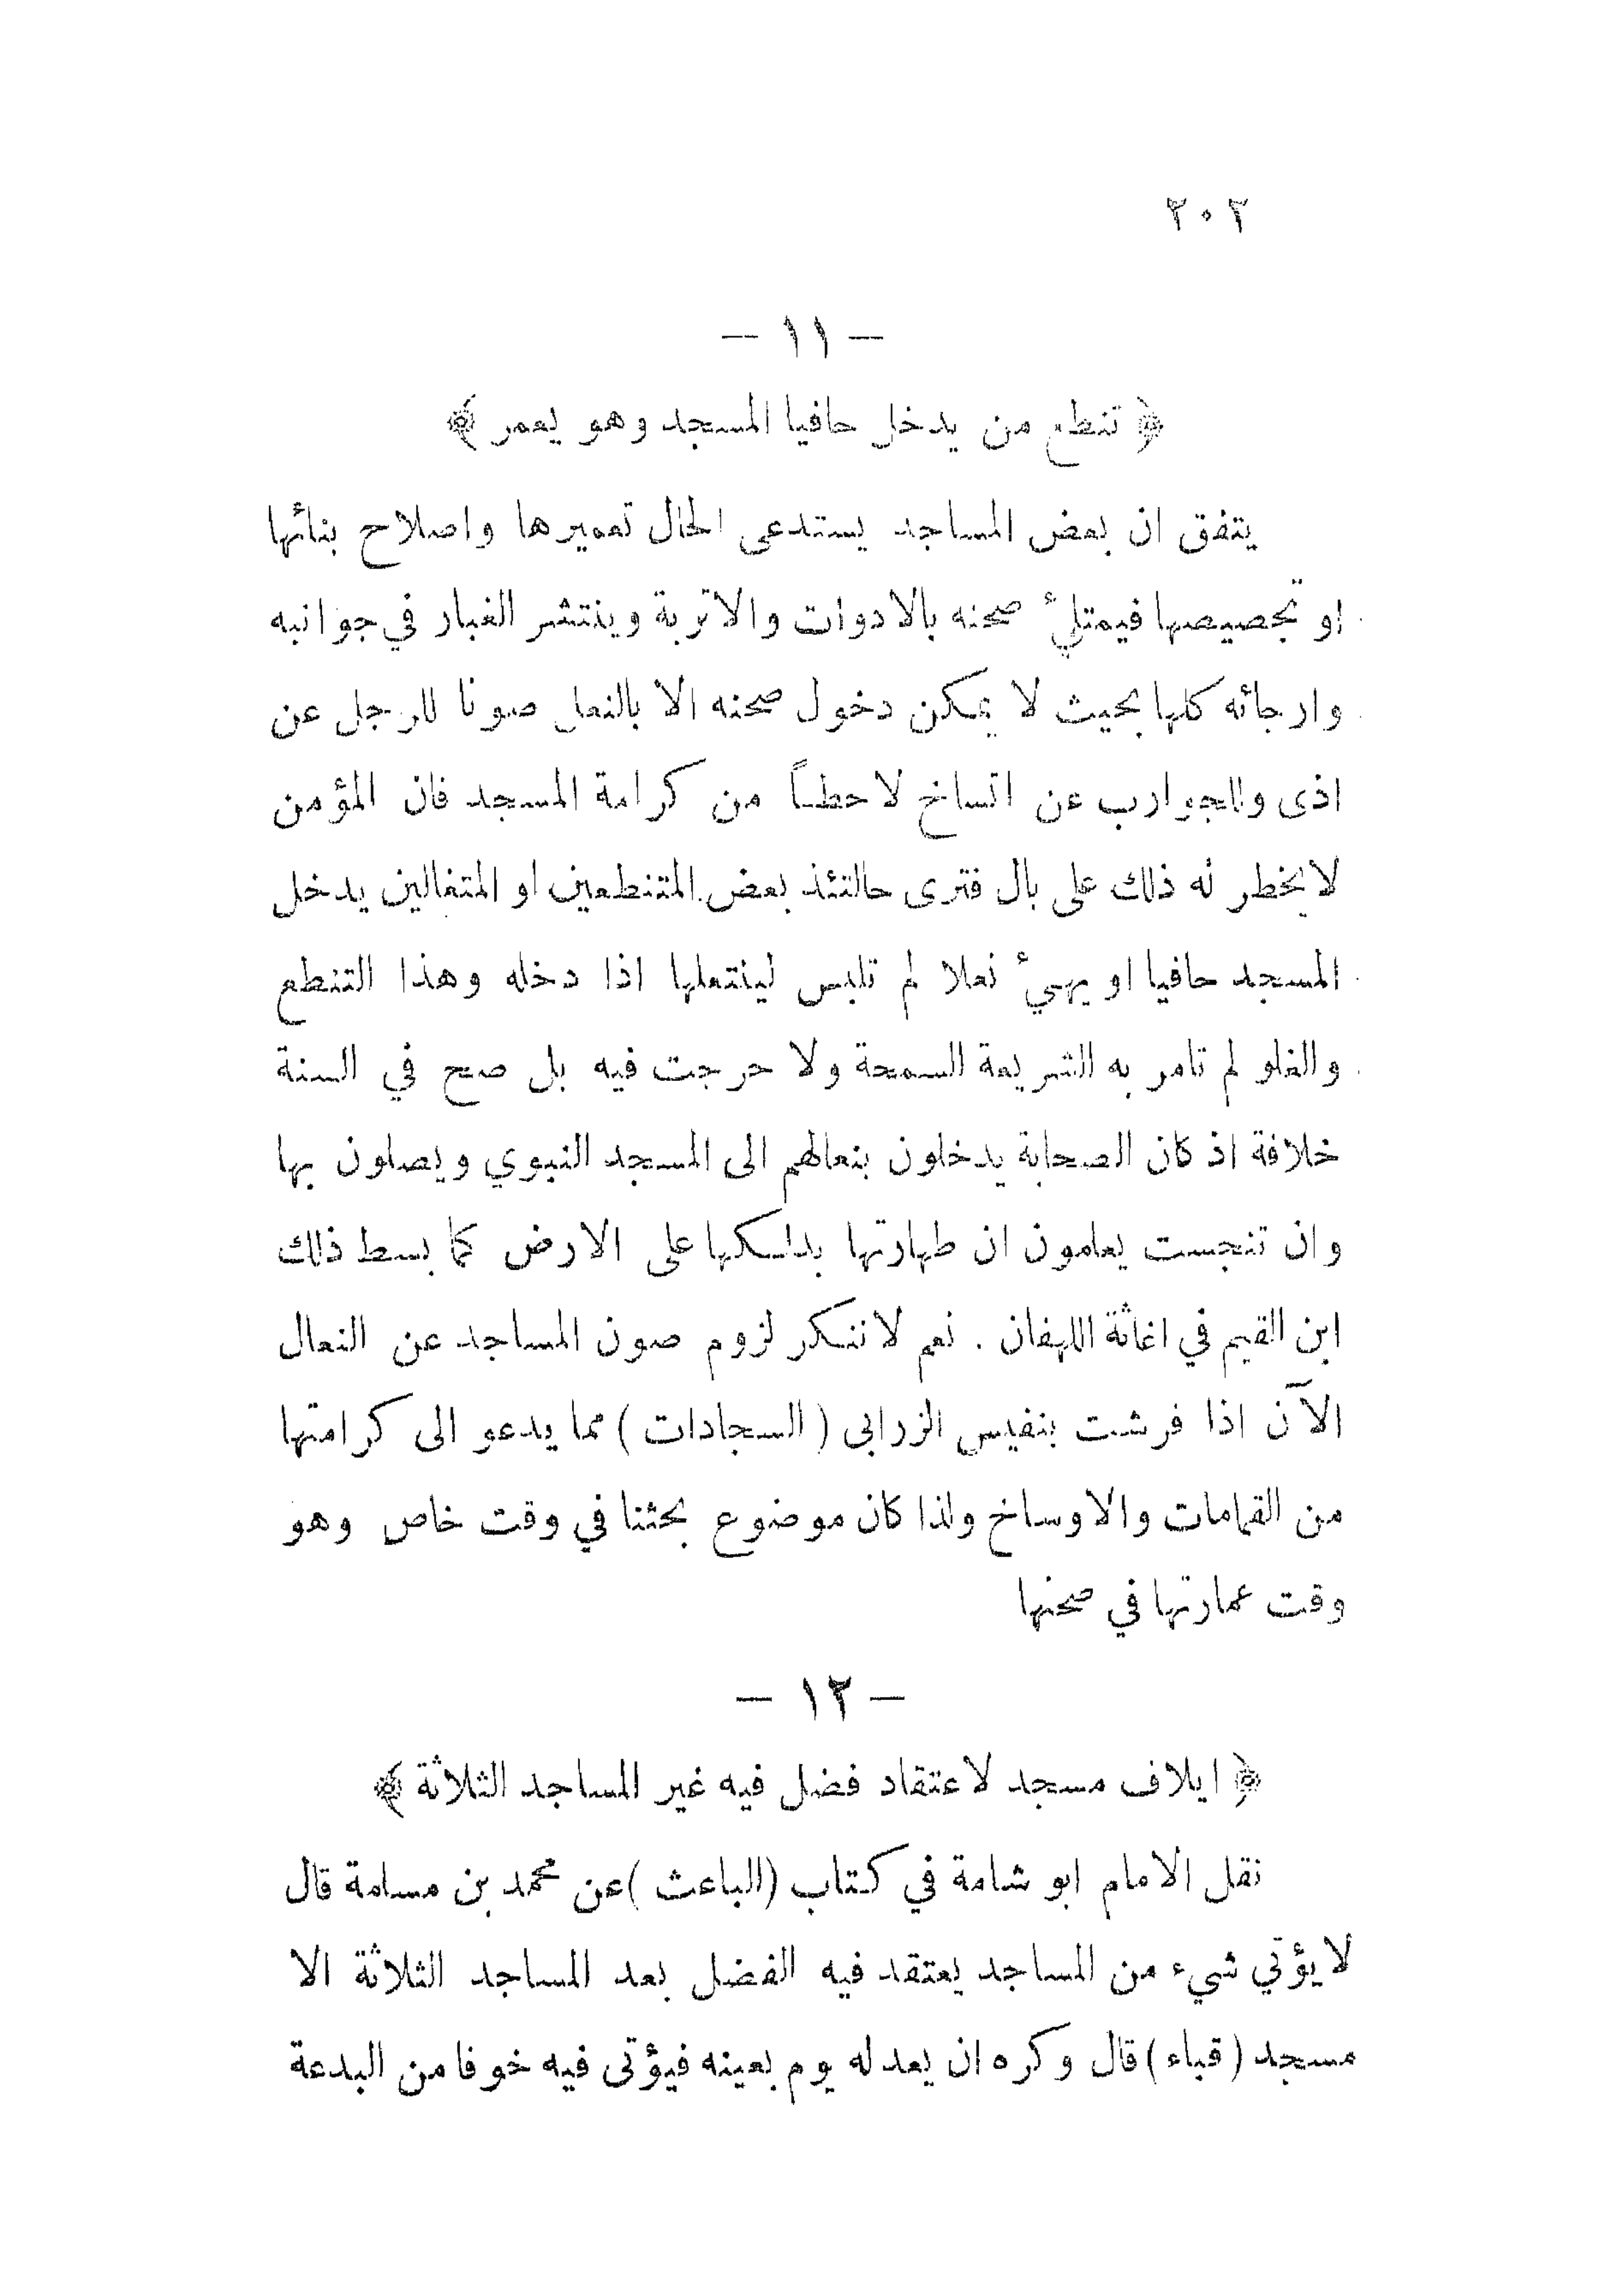 ٢٠٢
— ١١ —
﴿ تنطع من يدخل حافيا المسجد وهو يعمر ﴾
يتفق ان بعض المساجد يستدعى الحال تعميرها واصلاح بنائها
او تجصيصها فيمتلئ صحنه بالادوات والاتربة وينتشر الغبار في جوانبه
وارجائه كلها بحيث لا يمكن دخول صحنه الا بالنعل صونا للرجل عن
اذى وللجوارب عن اتساخ لا حطاً من كرامة المسجد فان المؤمن
لا يخطر له ذلك على بال فترى حالتئذ بعض المتنطعين او المتغالين يدخل
المسجد حافيا او يهيئ نعلا لم تلبس لينتعلها اذا دخله وهذا التنطع
والغلو لم تامر به الشريعة السمحة ولا حرجت فيه بل صح في السنة
خلافة اذ كان الصحابة يدخلون بنعالهم الى المسجد النبوي ويصلون بها
وان تنجست يعلمون ان طهارتها بدلكها على الارض كما بسط ذلك
ابن القيم في اغاثة اللهفان . نعم لا ننكر لزوم صون المساجد عن النعال
الآن اذا فرشت بنفيس الزرابى ( السجادات ) مما يدعو الى كرامتها
من القمامات والاوساخ ولذا كان موضوع بحثنا في وقت خاص وهو
وقت عمارتها في صحنها
— ١٢ —
﴿ ايلاف مسجد لاعتقاد فضل فيه غير المساجد الثلاثة ﴾
نقل الامام ابو شامة في كتاب (الباعث )عن محمد بن مسلمة قال
لا يؤتي شيء من المساجد يعتقد فيه الفضل بعد المساجد الثلاثة الا
مسجد ( قباء ) قال وكره ان يعد له يوم بعينه فيؤتى فيه خوفا من البدعة